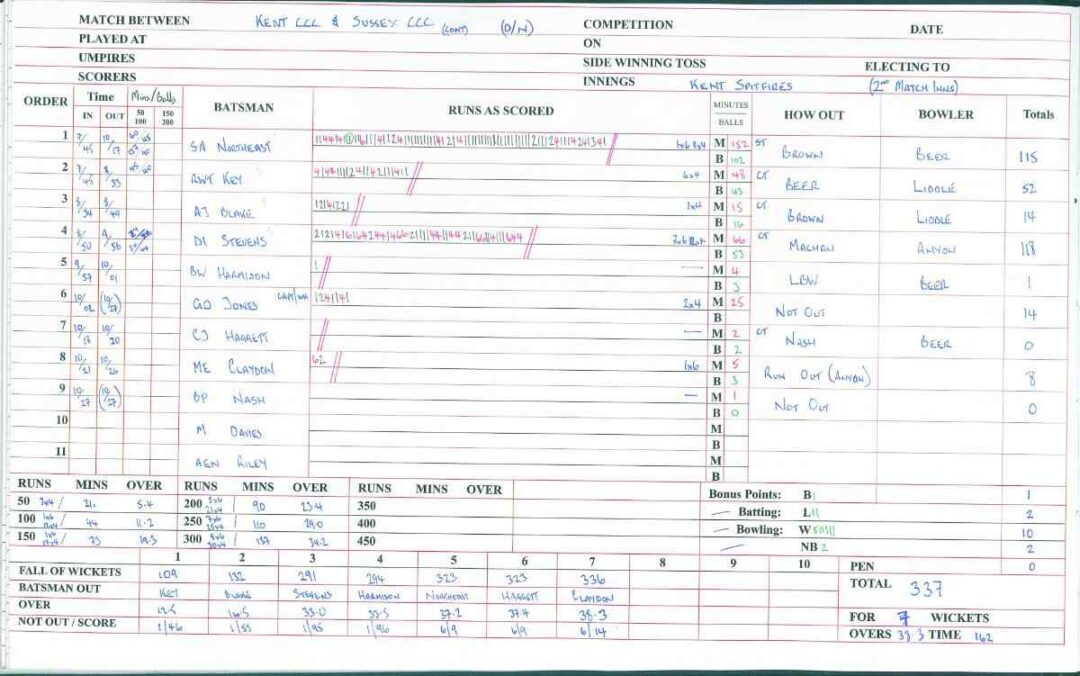 MATCH BETWEEN KENT CCC & SUSSEX CCC (CONT) (D/N) COMPETITION DATE
PLAYED AT ON
UMPIRES SIDE WINNING TOSS ELECTING TO
SCORERS INNINGS KENT SPITFIRES (2ND MATCH INNS)
ORDER Time Mins/Balls BATSMAN RUNS AS SCORED MINUTES BALLS HOW OUT BOWLER Totals
IN OUT 50 100 150 200
1 7/45 10/17 SA NORTHEAST M 152 ST BROWN BEER 115
B 102
2 7/45 8/33 RWT KEY 6x4 M 48 CT BEER LIDDLE 52
B 43
3 8/34 8/49 AJ BLAKE 1x4 M 15 CT BROWN LIDDLE 14
B 16
4 8/50 9/56 DI STEVENS M 66 CT MACHAN ANYON 118
B 53
5 9/57 10/01 BW HARMISON 1 — M 4 LBW BEER 1
B 3
6 10/02 (10/27) GO JONES CAPT/WK 2x4 M 25 NOT OUT 14
B
7 10/17 10/20 CJ HAGGETT — M 2 CT NASH BEER 0
B 2
8 10/21 10/26 ME CLAYDON 62 1x6 M 5 RUN OUT (ANYON) 8
B 3
9 10/27 (10/27) BP NASH — M 1 NOT OUT 0
B 0
10 M DAVIES M
B
11 AEN RILEY M
B
RUNS MINS OVER RUNS MINS OVER RUNS MINS OVER
50 21 5.4 200 90 23.4 350 Bonus Points: B 1
100 44 11.2 250 110 29.0 400 Batting: L 2
150 73 19.3 300 137 34.2 450 Bowling: W 10
NB 2 2
1 2 3 4 5 6 7 8 9 10 PEN 0
FALL OF WICKETS 109 132 291 294 323 323 336 TOTAL 337
BATSMAN OUT KEY BLAKE STEVENS HARMISON NORTHEAST HAGGETT CLAYDON
OVER 12.5 16.5 33.0 33.5 37.2 37.4 38.3 FOR 7 WICKETS
NOT OUT / SCORE 1/46 1/55 1/95 1/96 6/9 6/9 6/14 OVERS 38.3 TIME 162